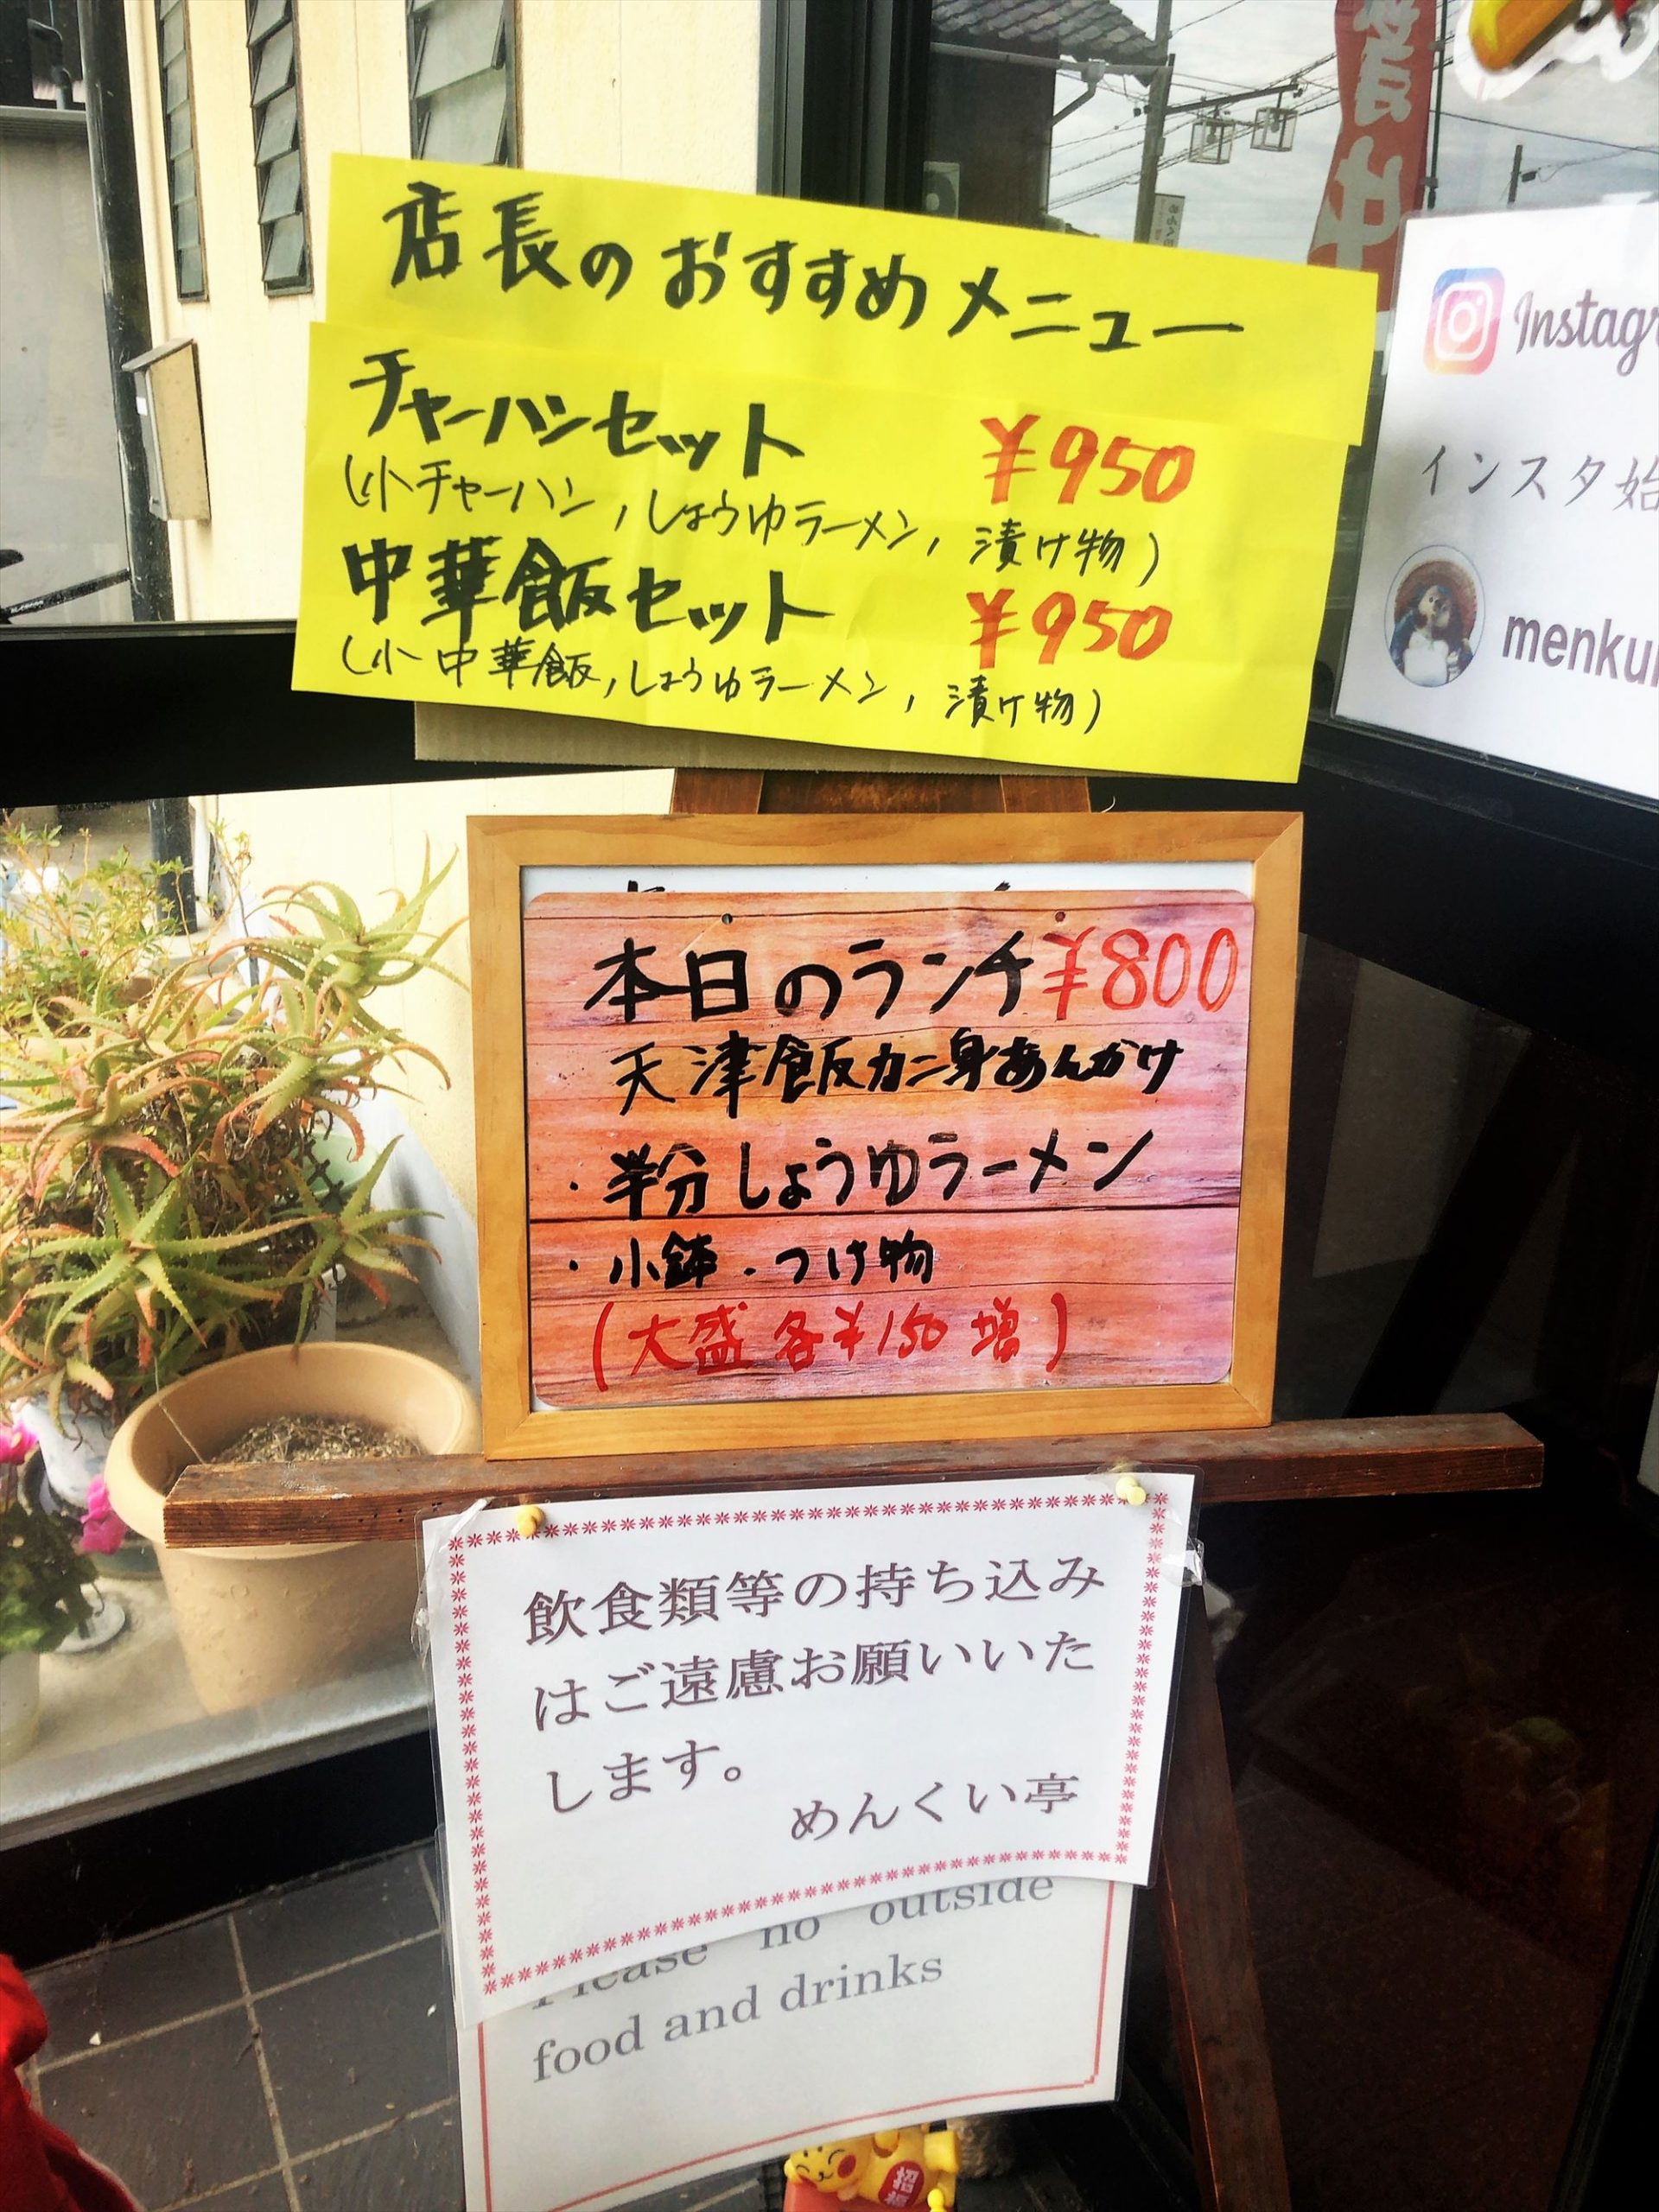 店長のおすすめメニュー
チャーハンセット ¥950
(小チャーハン,しょうゆラーメン,漬け物)
中華飯セット ¥950
(小中華飯,しょうゆラーメン,漬け物)
本日のランチ¥800
天津飯カニ身あんかけ
・半分しょうゆラーメン
・小鉢・つけ物
(大盛各¥150増)
飲食類等の持ち込み
はご遠慮お願いいた
します。
めんくい亭
Please no outside
food and drinks
Instagr
インスタ始
menkui
招福